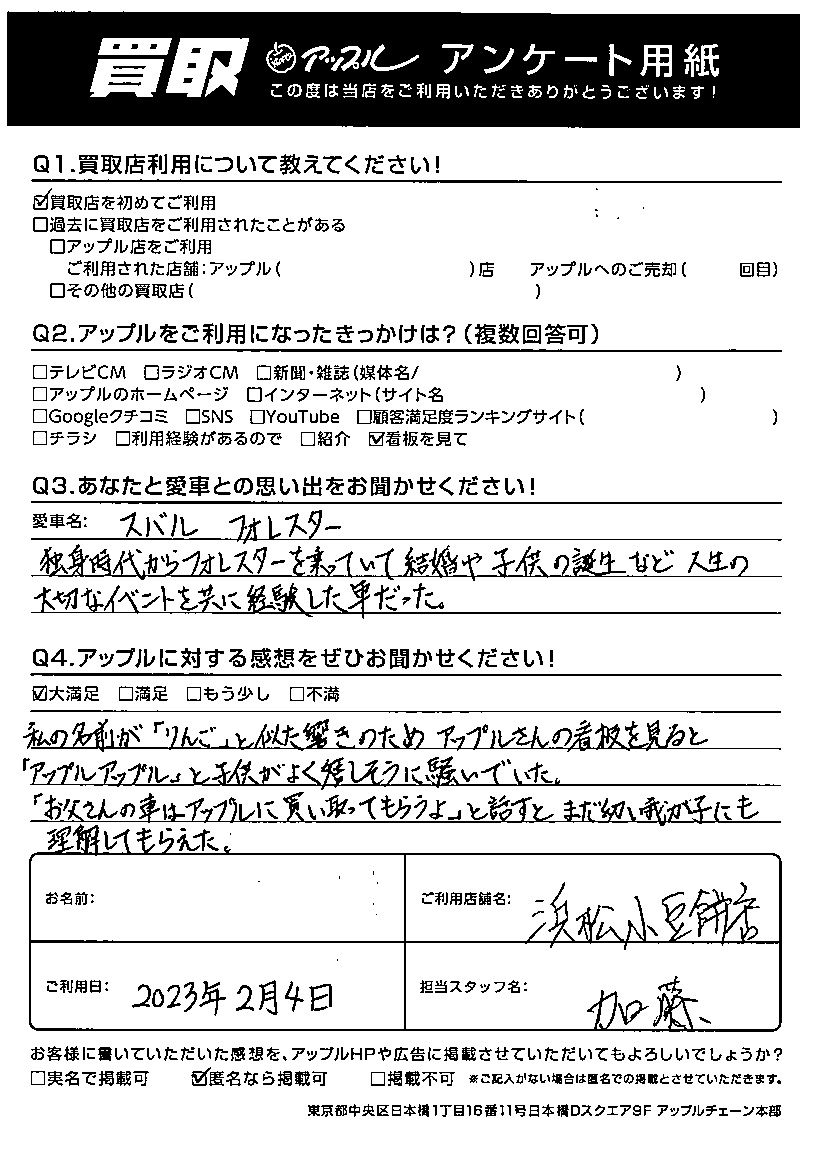 買取 アップル アンケート用紙
この度は当店をご利用いただきありがとうございます!
Q1.買取店利用について教えてください!
☑買取店を初めてご利用
□過去に買取店をご利用されたことがある
□アップル店をご利用
ご利用された店舗:アップル( )店 アップルへのご売却( 回目)
□その他の買取店( )
Q2.アップルをご利用になったきっかけは?(複数回答可)
□テレビCM □ラジオCM □新聞・雑誌(媒体名/ )
□アップルのホームページ □インターネット(サイト名 )
□Googleクチコミ □SNS □YouTube □顧客満足度ランキングサイト( )
□チラシ □利用経験があるので □紹介 ☑看板を見て
Q3.あなたと愛車との思い出をお聞かせください!
愛車名: スバル フォレスター
独身時代からフォレスターを乗っていて結婚や子供の誕生など人生の
大切なイベントを共に経験した車だった。
Q4.アップルに対する感想をぜひお聞かせください!
☑大満足 □満足 □もう少し □不満
私の名前が「りんご」と似た響きのためアップルさんの看板を見ると
「アップルアップル」と子供がよく嬉しそうに騒いでいた。
「お父さんの車はアップルに買い取ってもらうよ」と話すとまだ幼い我が子にも
理解してもらえた。
お名前: ご利用店舗名: 浜松小豆餅店
ご利用日: 2023年2月4日 担当スタッフ名: 加藤
お客様に書いていただいた感想を、アップルHPや広告に掲載させていただいてもよろしいでしょうか?
□実名で掲載可 ☑匿名なら掲載可 □掲載不可 ※ご記入がない場合は匿名での掲載とさせていただきます。
東京都中央区日本橋1丁目16番11号日本橋Dスクエア9F アップルチェーン本部